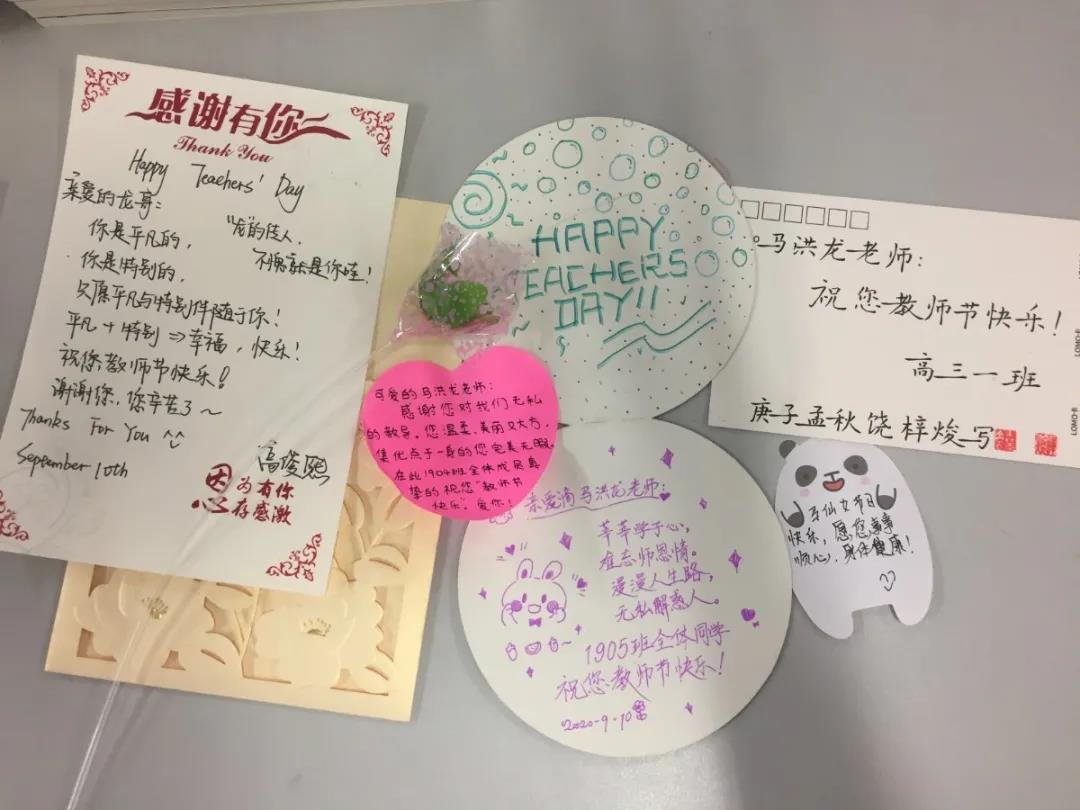 感谢有你
Thank You
Happy Teachers' Day
亲爱的龙哥:
你是平凡的,
你是特别的,
只愿平凡与特别伴随于你!
平凡+特别⇒幸福,快乐!
祝您教师节快乐!
谢谢你,您辛苦了~
Thanks For You ^^
September 10th
"龙"的佳人,
不愧就是你哇!
高俊熙
恩为有你
心存感激
HAPPY
TEACHERS
DAY!!
可爱的马洪龙老师:
感谢您对我们无私
的教导。您温柔、美丽又大方,
集优点于一身的您完美无暇。
在此1904班全体成员真
挚的祝您"教师节
快乐"。爱你!
亲爱滴马洪龙老师:
莘莘学子心,
难忘师恩情。
漫漫人生路,
无私解惑人。
1905班全体同学
祝您教师节快乐!
2020-9-10
马洪龙老师:
祝您教师节快乐!
高三一班
庚子孟秋饶梓焌写
马仙女节日
快乐,愿您事事
顺心,身体健康!